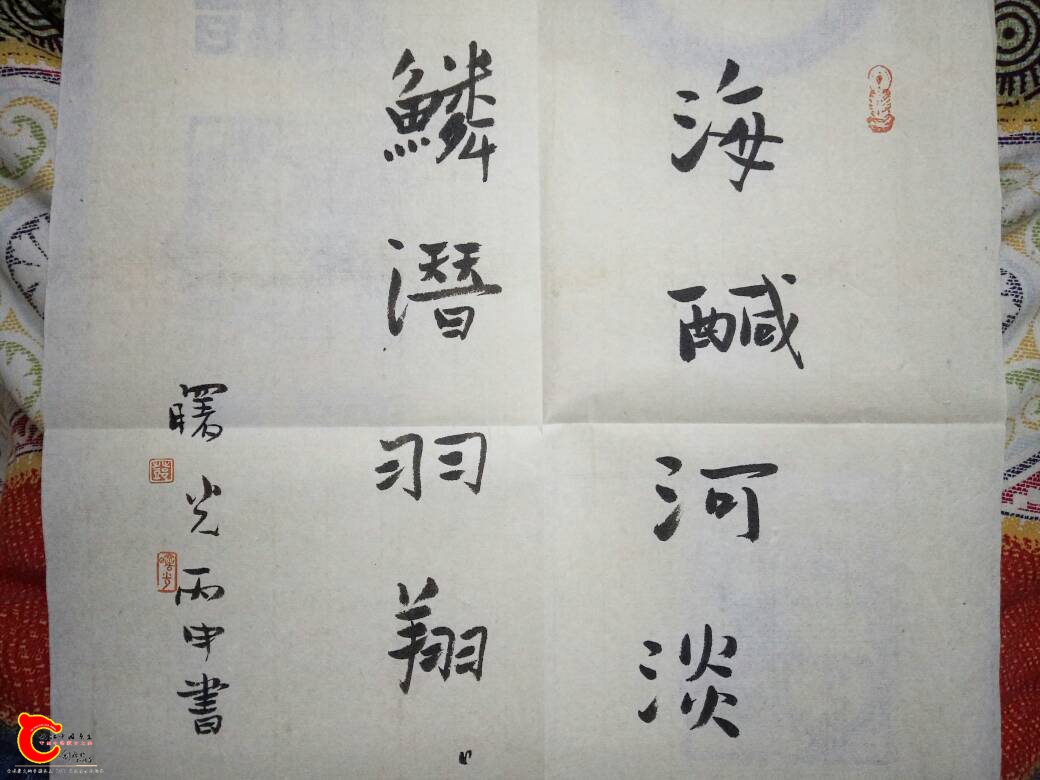 海醎河淡
鱗潛羽翔
曙光丙申書